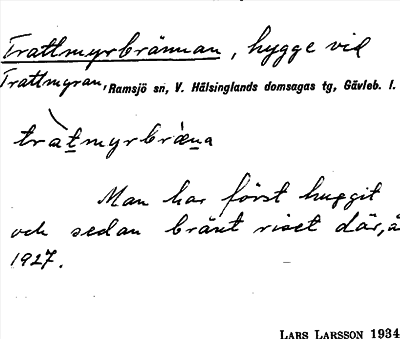 Trattmyrbrännan, hygge vid
Trattmyran, Ramsjö sn, V. Hälsinglands domsagas tg, Gävleb. l.
tràt̲myrbræn̲a
Man har först huggit
och sedan bränt riset där, å
1927.
LARS LARSSON 1934